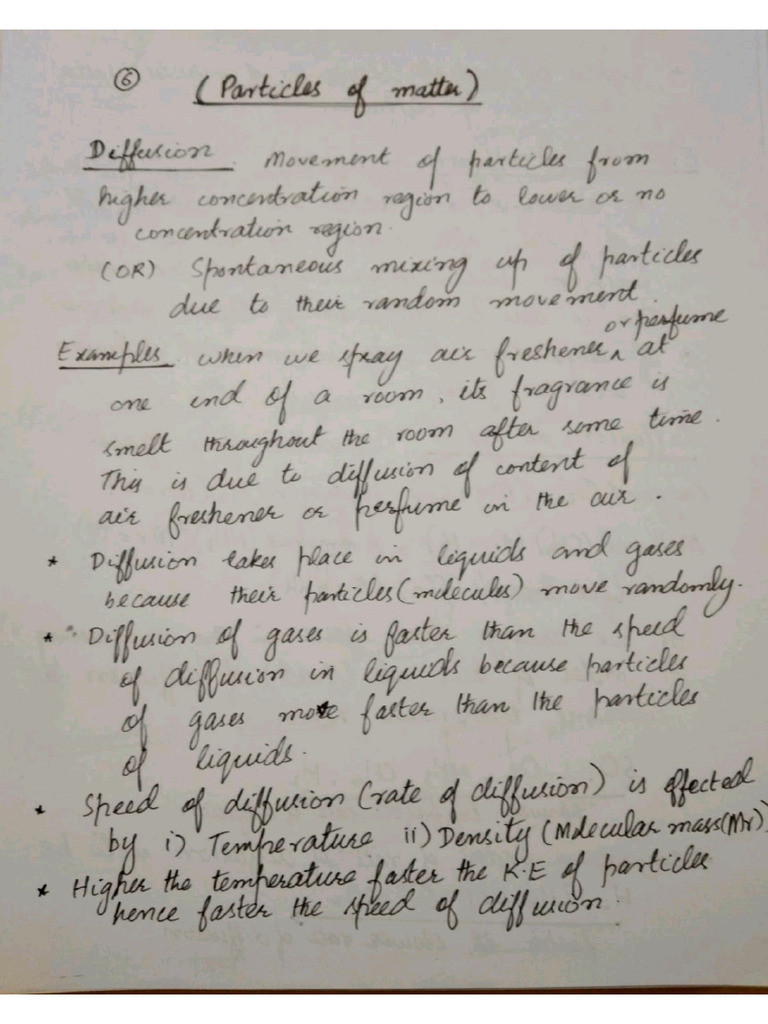 ⑥ (Particles of matter)
Diffusion. Movement of particles from
higher concentration region to lower or no
concentration region.
(OR) Spontaneous mixing up of particles
due to their random movement.
or perfume
Examples. when we spray air freshener ^ at
one end of a room, its fragrance is
smelt throughout the room after some time.
This is due to diffusion of content of
air freshener or perfume in the air.
* Diffusion takes place in liquids and gases
because their particles (molecules) move randomly.
* Diffusion of gases is faster than the speed
of diffusion in liquids because particles
of gases move faster than the particles
of liquids.
* Speed of diffusion (rate of diffusion) is effected
by i) Temperature ii) Density (Molecular mass (Mr))
* Higher the temperature faster the K.E of particles
hence faster the speed of diffusion.